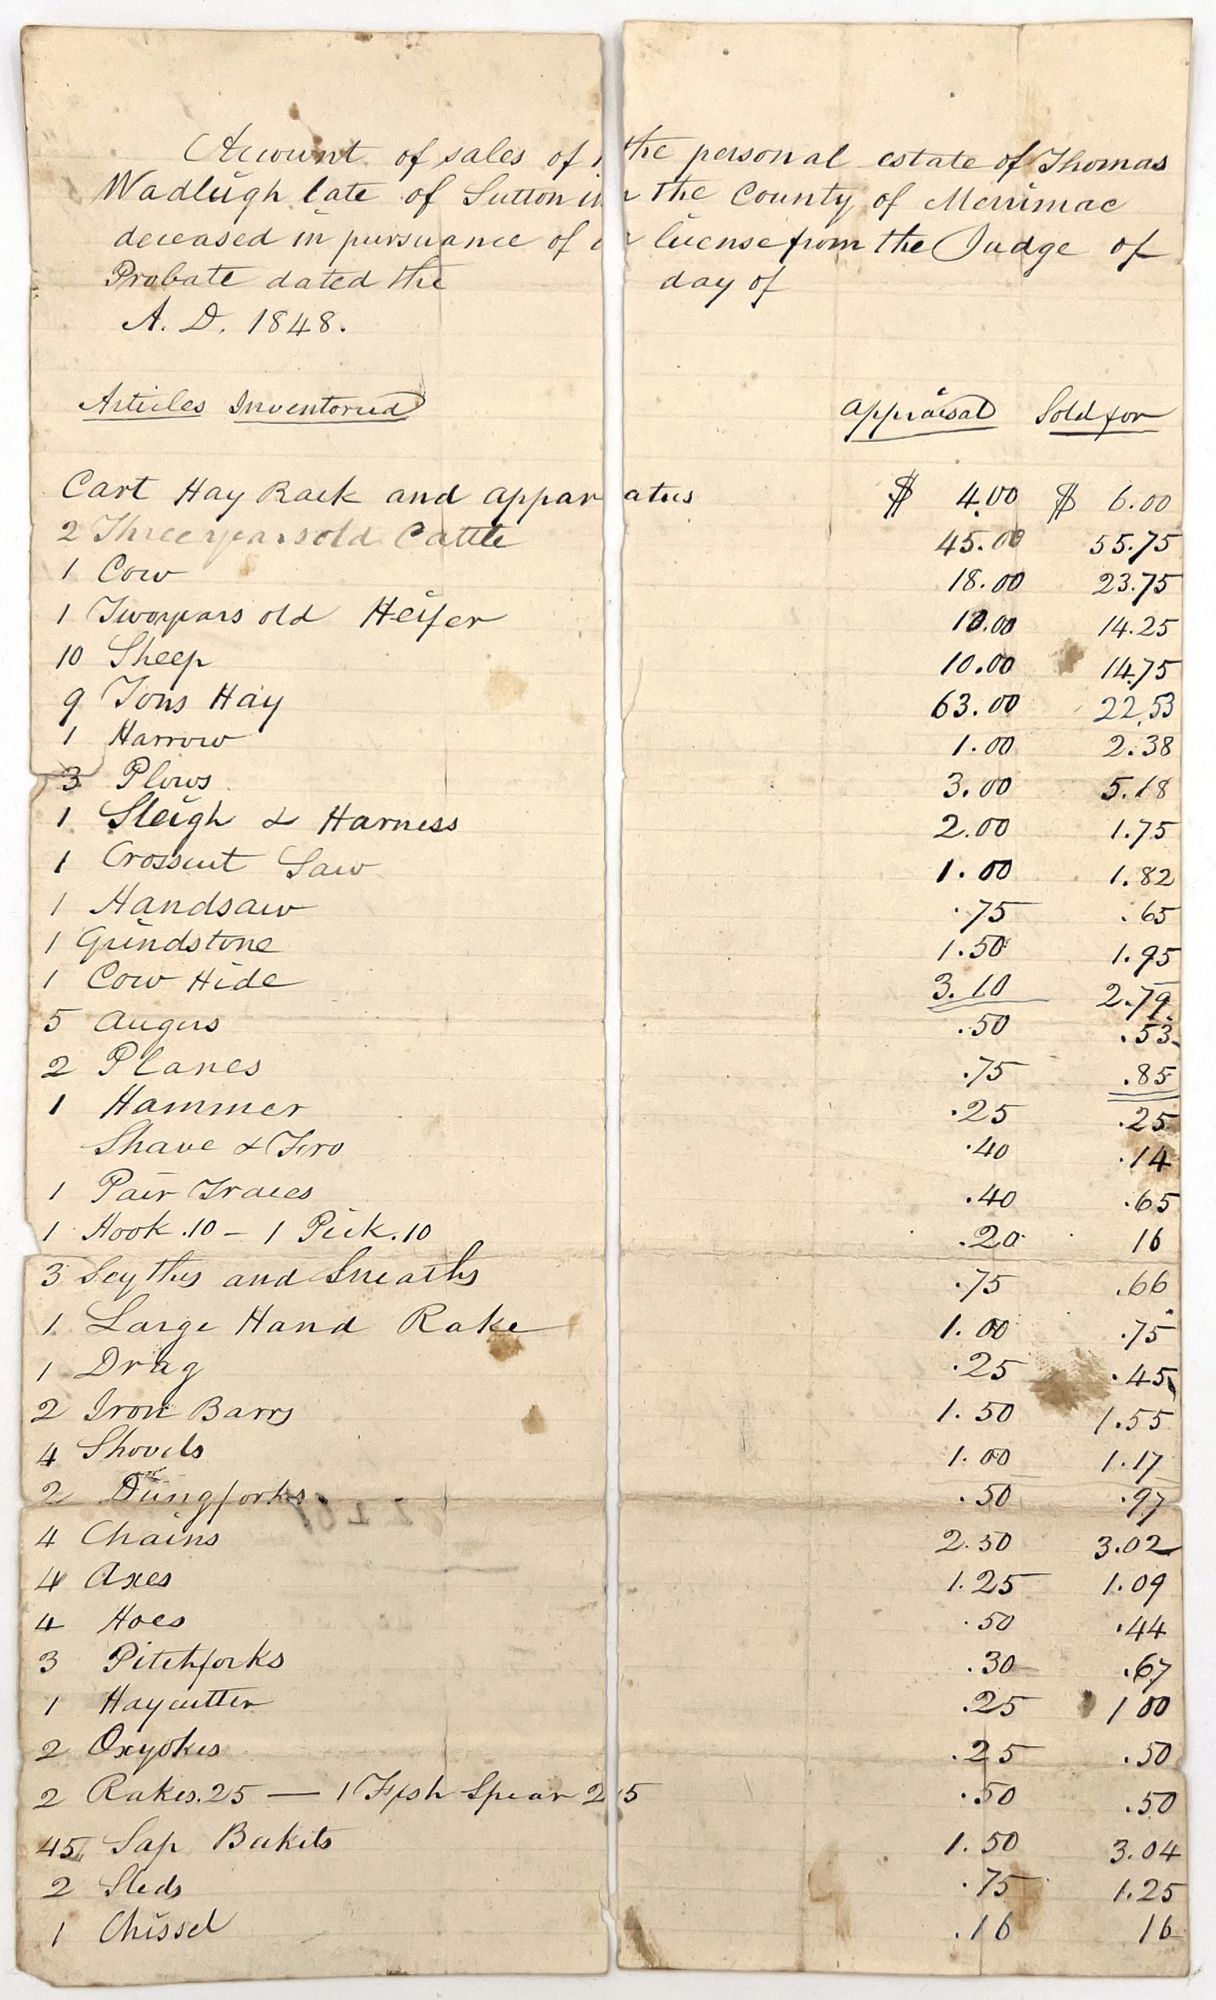 Account of sales of the personal estate of Thomas
Wadleigh late of Sutton in the County of Merrimac
deceased in pursuance of a license from the Judge of
Probate dated the day of
A. D. 1848.
Articles Inventoried Appraisal Sold for
Cart Hay Rack and apparatus $ 4.00 $ 6.00
2 Three years old Cattle 45.00 55.75
1 Cow 18.00 23.75
1 Two years old Heifer 10.00 14.25
10 Sheep 10.00 14.75
9 Tons Hay 63.00 22.53
1 Harrow 1.00 2.38
3 Plows 3.00 5.18
1 Sleigh & Harness 2.00 1.75
1 Crosscut Saw 1.00 1.82
1 Handsaw .75 .65
1 Grindstone 1.50 1.95
1 Cow Hide 3.10 2.79
5 Augers .50 .53
2 Planes .75 .85
1 Hammer .25 .25
Shave & Fro .40 .14
1 Pair Traces .40 .65
1 Hook .10 – 1 Pick .10 .20 16
3 Scythes and Sneaths .75 .66
1 Large Hand Rake 1.00 .75
1 Drag .25 .45
2 Iron Barrs 1.50 1.55
4 Shovels 1.00 1.17
2 Dungforks .50 .97
4 Chains 2.50 3.02
4 Axes 1.25 1.09
4 Hoes .50 .44
3 Pitchforks .30 .67
1 Haycutter .25 1 00
2 Oxyokes .25 .50
2 Rakes .25 — 1 Fish Spear 25 .50 .50
45 Sap Buckits 1.50 3.04
2 Sleds .75 1.25
1 Chissel .16 16